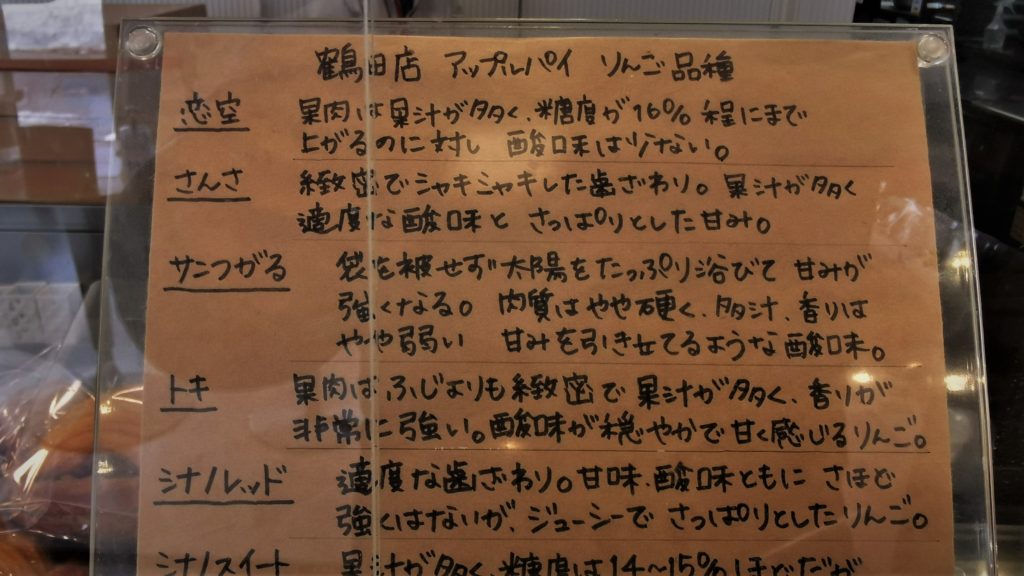 鶴田店 アップルパイ りんご品種
恋空 果肉は果汁が多く、糖度が16%程にまで
上がるのに対し 酸味は少ない。
さんさ 緻密でシャキシャキした歯ざわり。果汁が多く
適度な酸味と さっぱりとした甘み。
サンつがる 袋を被せず太陽をたっぷり浴びて 甘みが
強くなる。 肉質はやや硬く、多汁、香りは
やや弱い 甘みを引き立てるような酸味。
トキ 果肉はふじよりも緻密で果汁が多く、香りが
非常に強い。酸味が穏やかで甘く感じるりんご。
シナノレッド 適度な歯ざわり。甘味、酸味ともに さほど
強くはないが、ジューシーで さっぱりとしたりんご。
シナノスイート 果汁が多く、糖度は14〜15%ほどだが